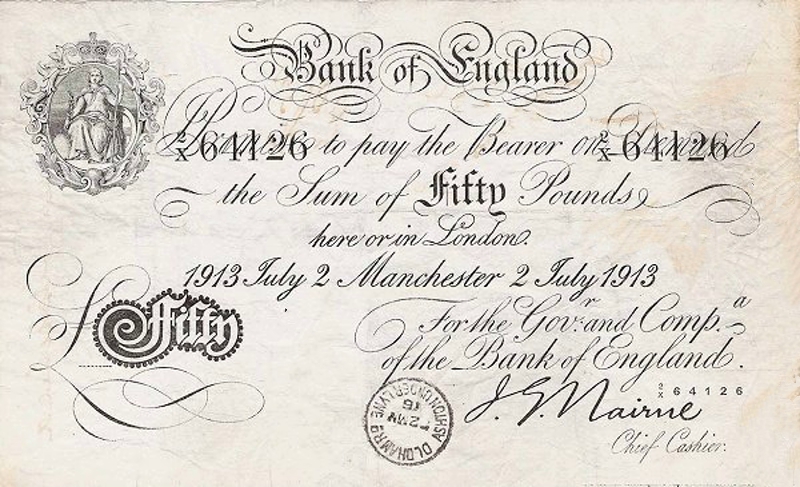 Bank of England
I Promise to pay the Bearer on Demand
2/X 64126 2/X 64126
the Sum of Fifty Pounds
here or in London.
1913 July 2 Manchester 2 July 1913
£ Fifty
For the Gov.r and Comp.a
of the Bank of England.
2/X 64126
J. G. Nairne
Chief Cashier.
ASHTON UNDER LYNE OLDHAM RD
16